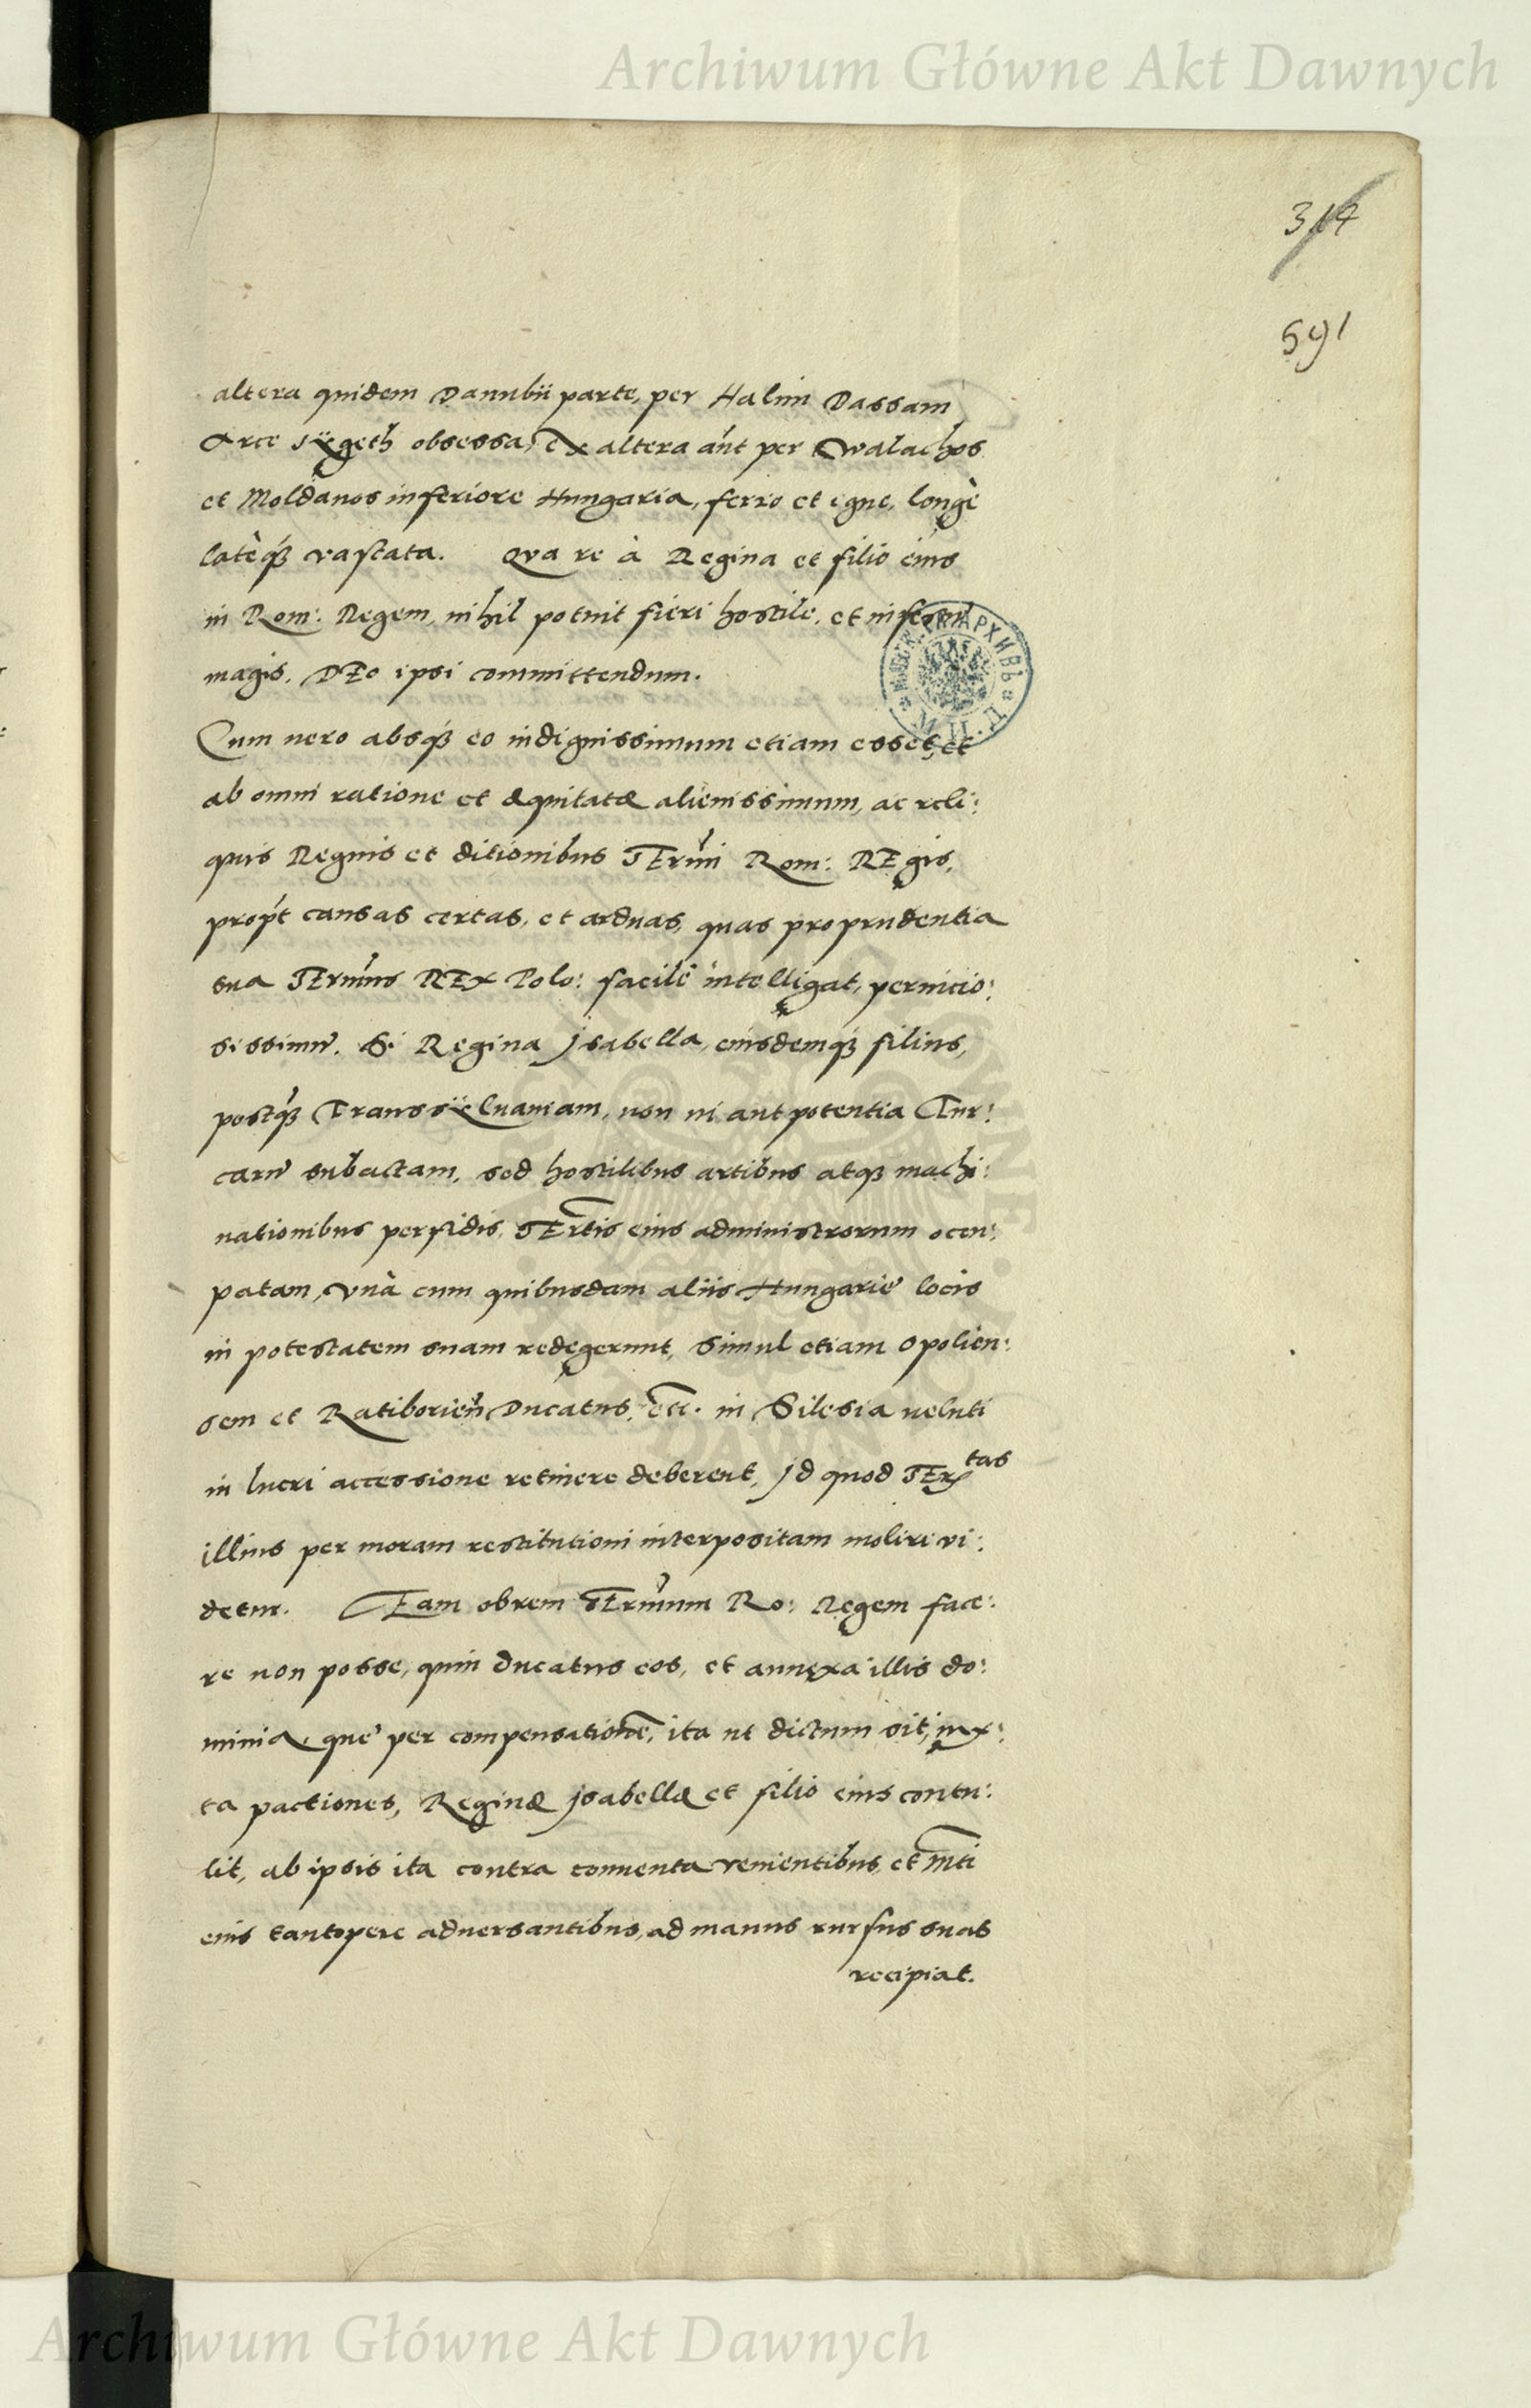 Archiwum Główne Akt Dawnych
314
591
altera quidem Danubii parte, per Halim Bassam
Arce Sÿgeth obsessa, Ex altera aũt per Walachos
et Moldauos inferiore Hungaria, ferro et igne, longè
latèq́ꝫ vastata. Qua re à Regina et filio eius
in Rom: Regem, nihil potuit fieri hostile, et infestũ
magis, DEo ipsi committendum.
Cum uero absq́ꝫ eo indignissimum etiam esset, et
ab omni ratione et æquitate alienissimum, ac reli:
quis Regnis et ditionibus SErmi Rom: REgis,
propt causas certas, et arduas, quas pro prudentia
sua SErmus REx Polo: facilè intelligat, pernicio:
sissimũ. Si Regina Isabella, eiusdemq́ꝫ filius,
postq́ꝫ Transsÿluaniam, non ui aut potentia Tur:
carũ subactam, sed hostilibus artibus atqꝫ machi:
nationibus perfidis, SErtis eius administrorum occu:
patam, vnà cum quibusdam aliis Hungarię locis
in potestatem suam redegerunt, simul etiam Opolien:
sem et Ratiborieñ Ducatus, etc. in Silesia ueluti
in lucri accessione retinere deberent, Id quod SErtas
illius per moram restitutioni interpositam moliri vi:
detur. Eam obrem SErmum Ro: Regem face:
re non posse, quin ducatus eos, et annexa illis do:
minia, quę per compensationẽ, ita ut dictum sit, iux:
ta pactiones, Reginæ Isabellæ et filio eius contu:
lit, ab ipsis ita contra conuenta venientibus, et Mti
eius tantopere aduersantibus, ad manus rursus suas
recipiat.
Archiwum Główne Akt Dawnych